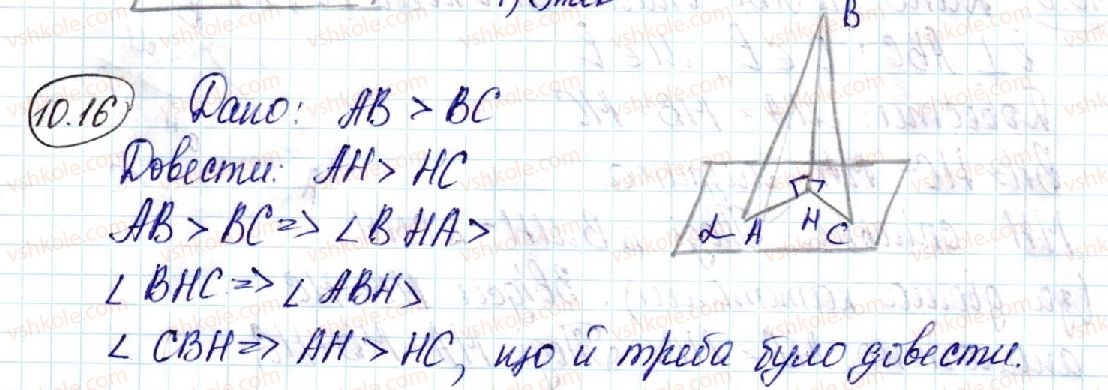 10.16 Дано: AB > BC
Довести: AH > HC
AB > BC => ∠BHA >
∠BHC => ∠ABH >
∠CBH => AH > HC, що й треба було довести.
B
α A H C
vshkole.com